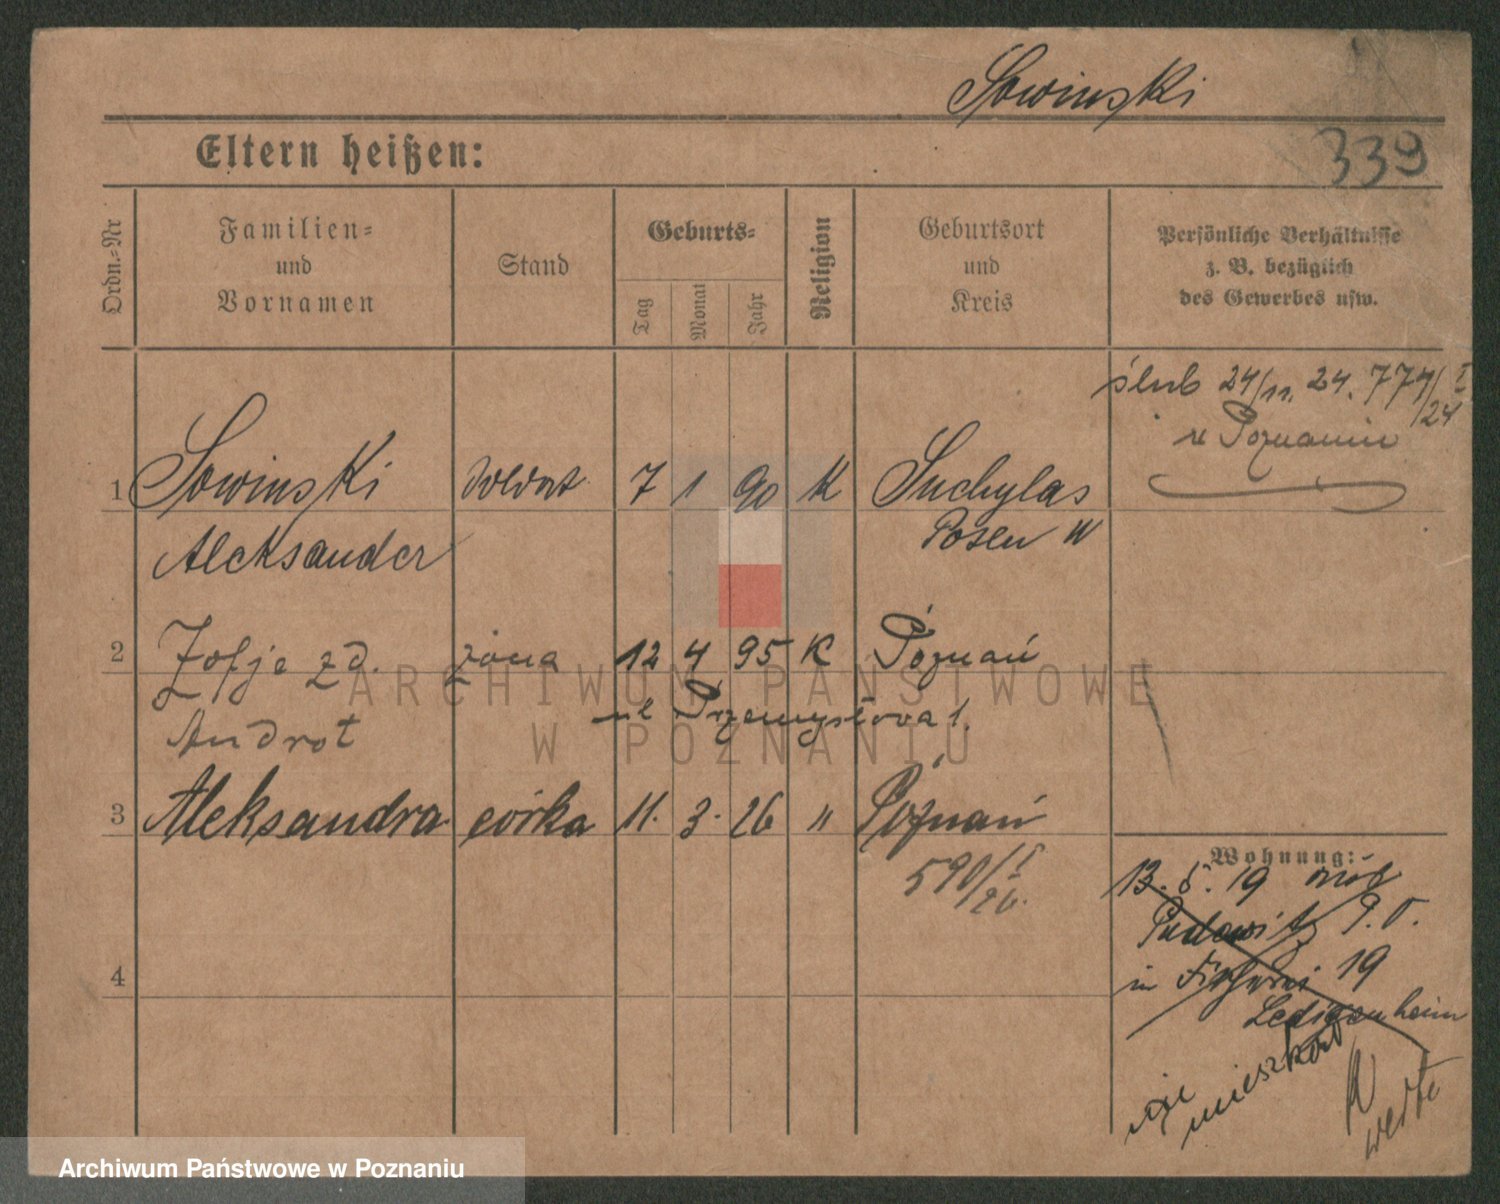 Sowinski
339
Eltern heißen:
Ordn.=Nr
Familien= und Vornamen
Stand
Geburts=
Tag
Monat
Jahr
Religion
Geburtsort und Kreis
Persönliche Verhältnisse z. B. bezüglich des Gewerbes usw.
ślub 24/11. 24. 774/I/24
w Poznaniu
1 Sowinski Soldat 7 1 90 K Suchylas
Aleksander Posen W
2 Zofje zd. żona 12 4 95 K Poznań
Androt ul Przemysłowa 1.
3 Aleksandra córka 11. 3. 26 " Poznań
590/I/26.
4
Wohnung:
13. 5. 19
Pudewitz 9. 5.
in 19
Ledigenheim
nie mieszkał
werte
ARCHIWUM PAŃSTWOWE
W POZNANIU
Archiwum Państwowe w Poznaniu